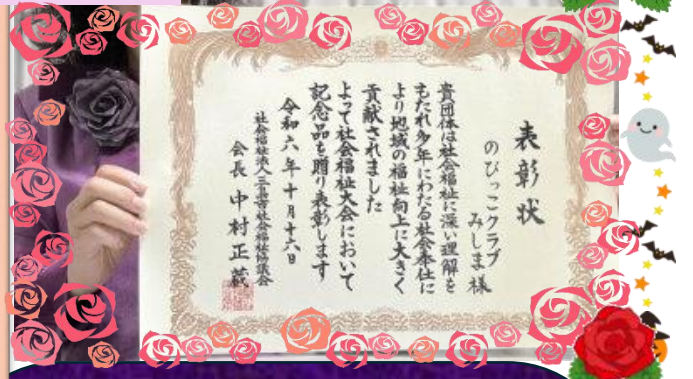 表彰状
のびっこクラブ
みしま様
貴団体は社会福祉に深い理解を
もたれ多年にわたる社会奉仕に
より地域の福祉向上に大きく
貢献されました
よって社会福祉大会において
記念品を贈り表彰します
令和六年十月十六日
社会福祉法人三島市社会福祉協議会
会長 中村正蔵